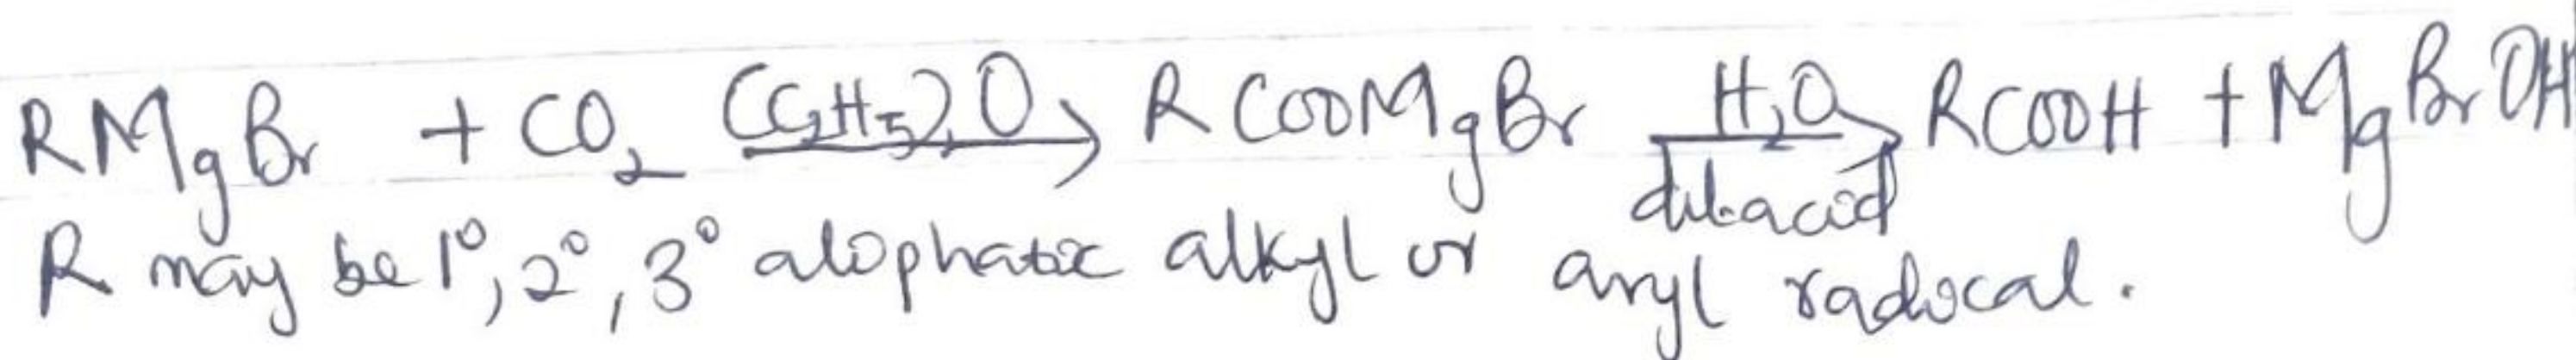 RMgBr + CO₂ (C₂H₅)₂O → RCOOMgBr H₂O → dil.acid RCOOH + MgBrOH
R may be 1°, 2°, 3° aliphatic alkyl or aryl radical.